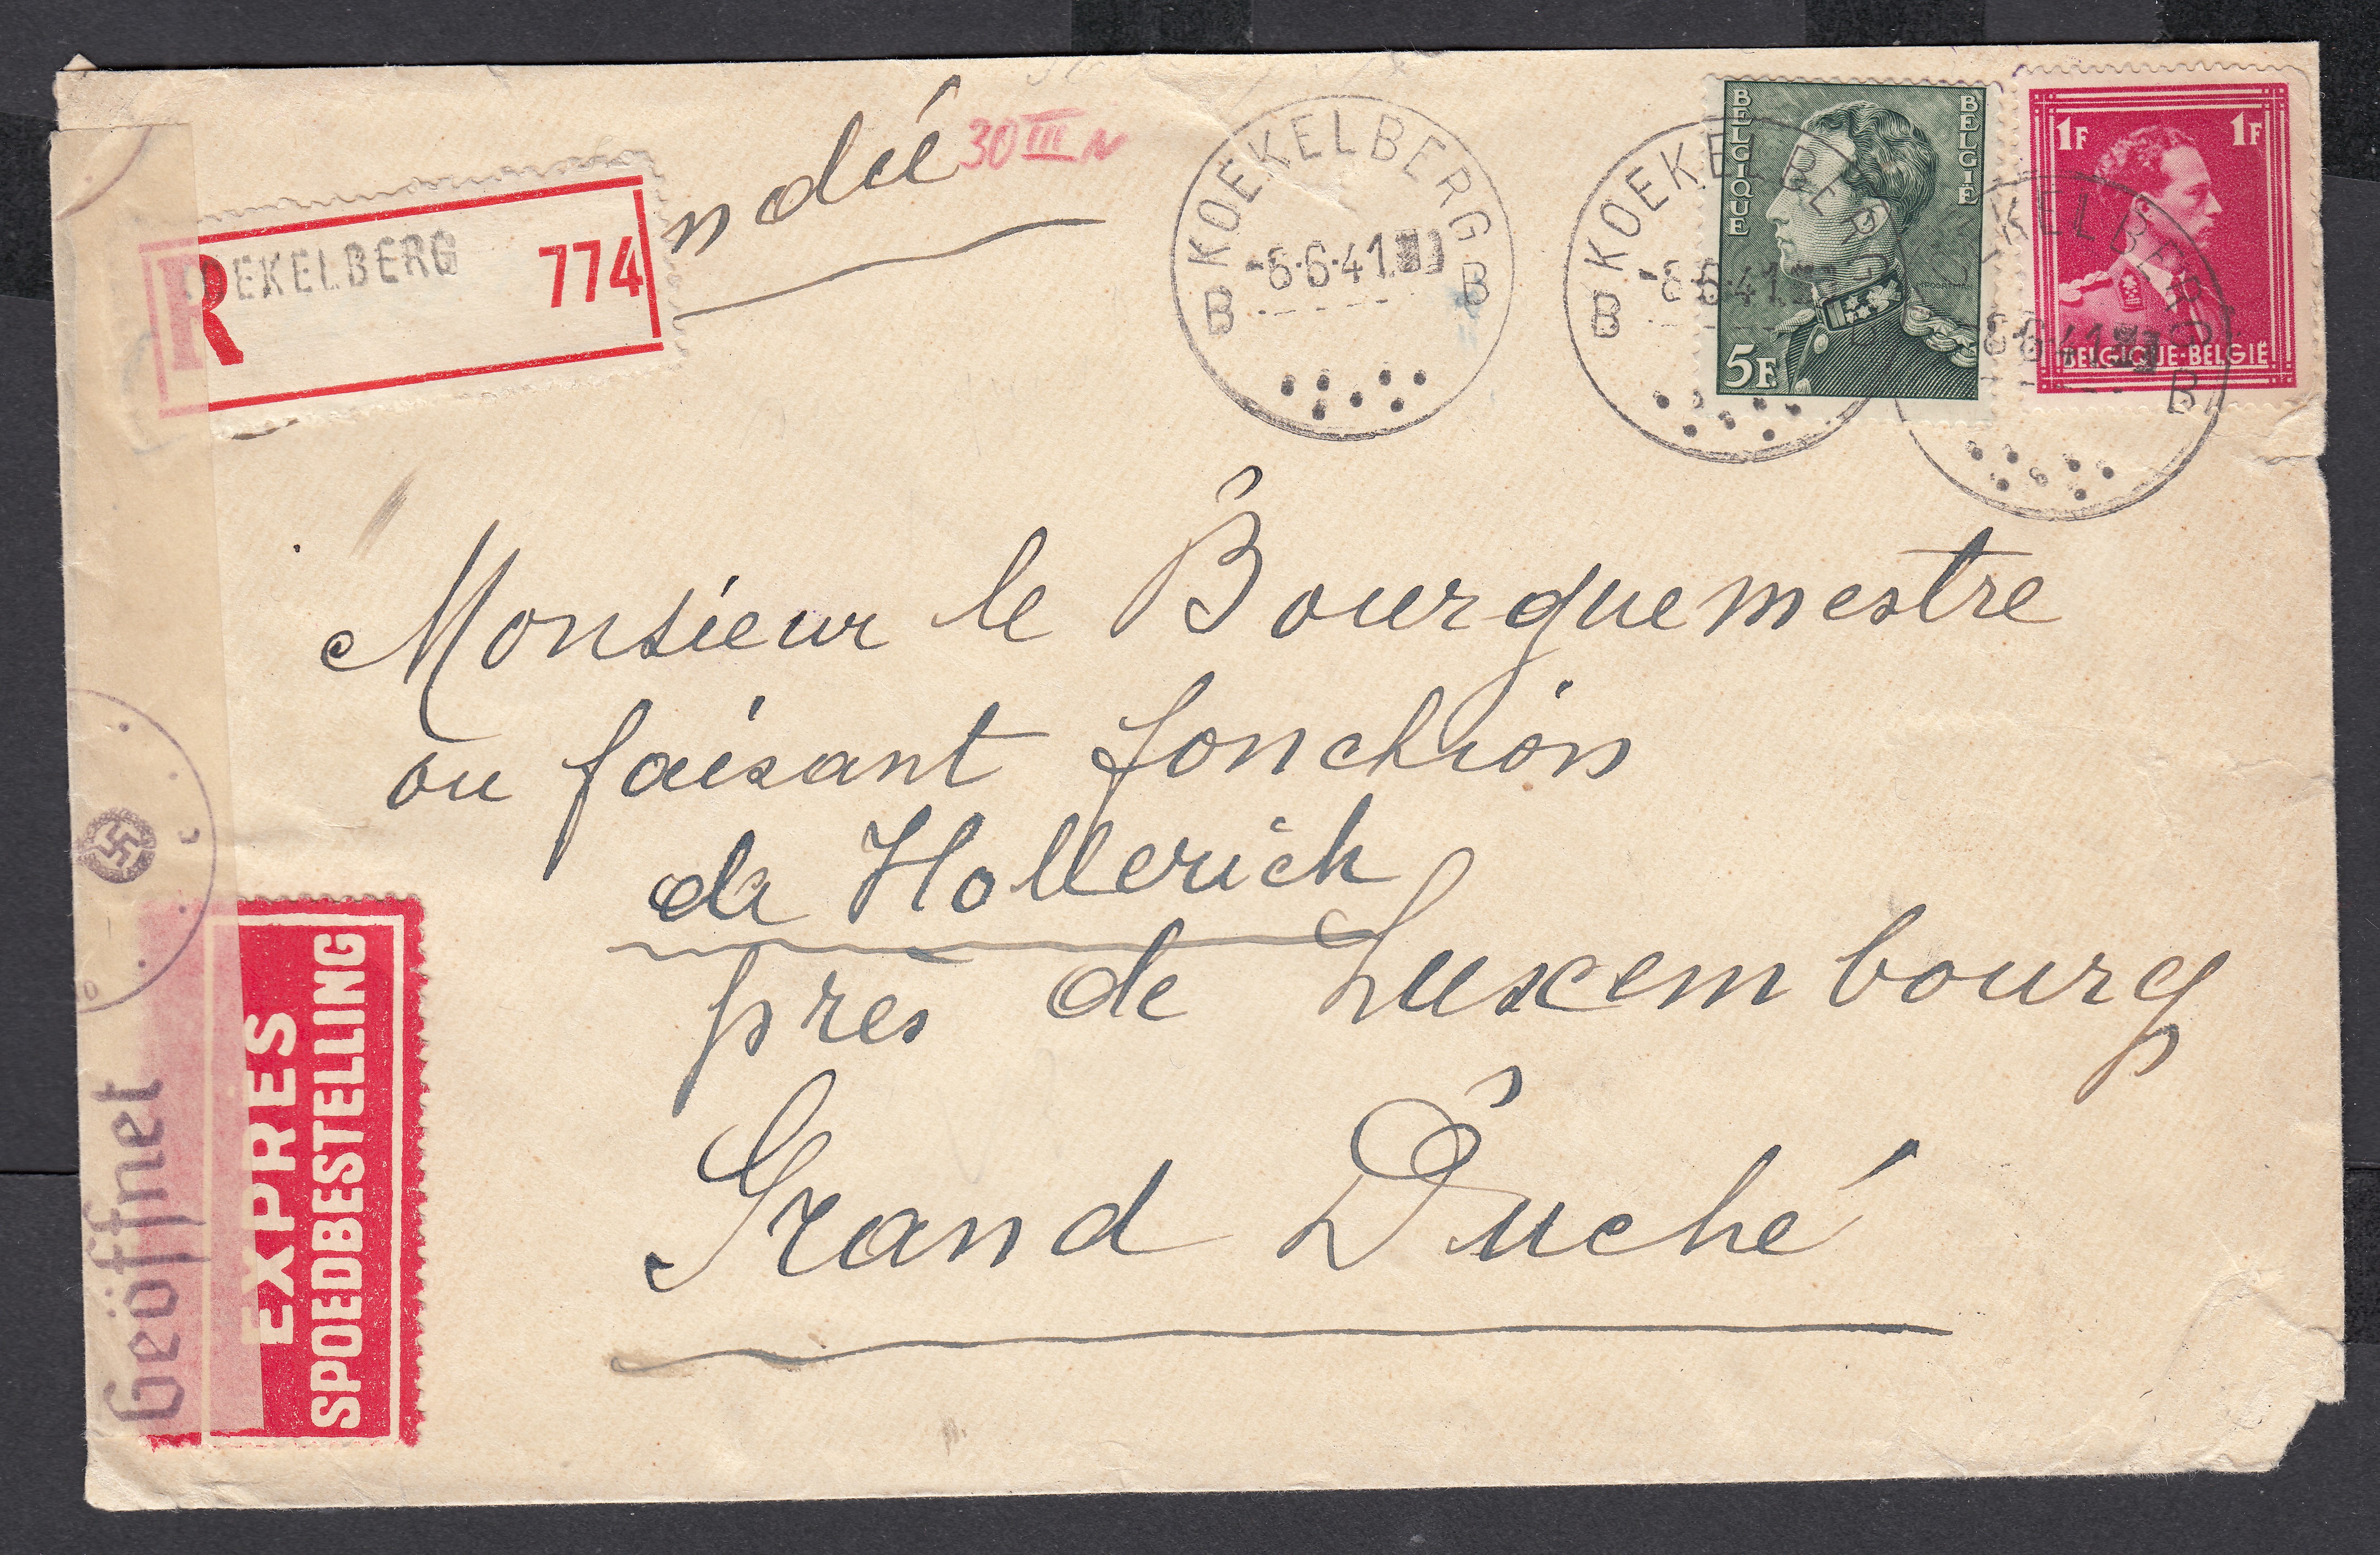 ndée
30 III N
R
OEKELBERG
774
KOEKELBERG
B -6·6·41 B
KOEKELBERG
B -6·6·41
BELGIQUE
BELGIË
5F
1F 1F
KELBERG
-6·6·41 B
BELGIQUE·BELGIË
Monsieur le Bourguemestre
ou faisant fonction
de Hollerich
près de Luxembourg
Grand Duché
Geöffnet
EXPRES
SPOEDBESTELLING